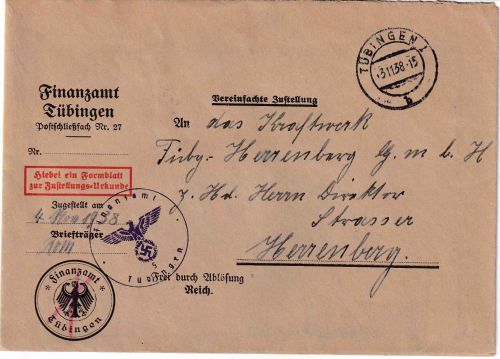 TÜBINGEN 1
-3.11.38.-15
b
Finanzamt
Tübingen
Postschließfach Nr. 27
Vereinfachte Zustellung
An das Kraftwerk
Tübg.- Herrenberg G.m.b.H
z. Hd. Herrn Direktor
Strasser
Herrenberg.
Nr.
Hiebei ein Formblatt
zur Zustellungs-Urkunde
Zugestellt am
4. Nov 1938
Briefträger
Finanzamt
Tübingen
Frei durch Ablösung
Reich.
Finanzamt
Tübingen